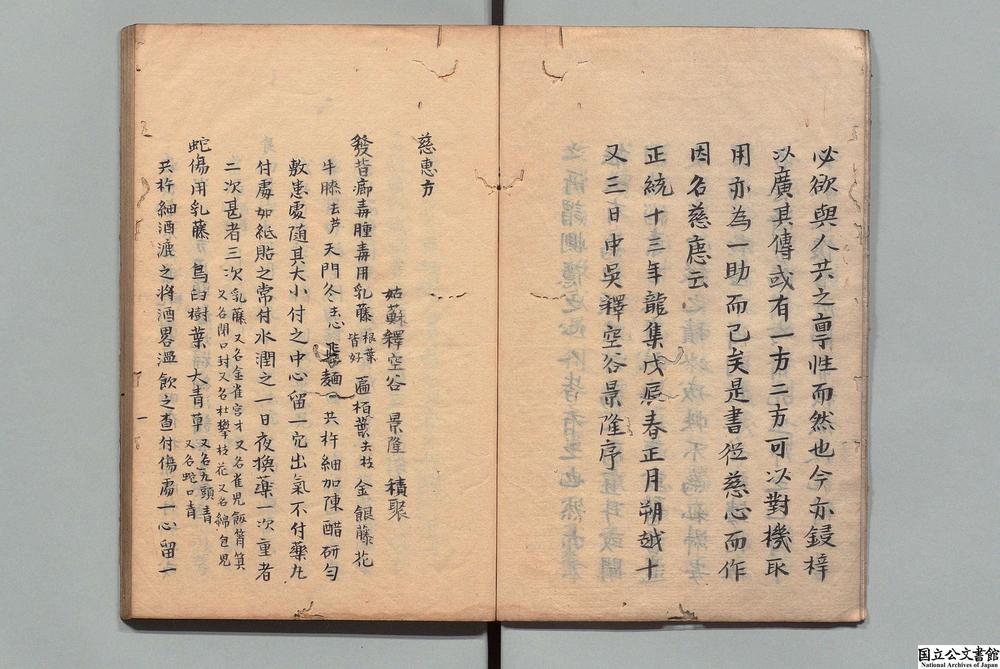 必欲與人共之亶性而然也今亦鋟梓
以廣其傳或有一方二方可以對機取
用亦為一助而已矣是書從慈心而作
因名慈應云
正統十三年龍集戊辰春正月朔越十
又三日中吳釋空谷景隆序
慈惠方
姑蘇釋空谷 景隆 積聚
發背癰毒腫毒用乳藤根葉皆好 匾柏葉去枝 金銀藤花
牛膝去芦 天門冬去心 麵 共杵細加陳醋研勻
敷患處随其大小付之中心留一穴出氣不付藥丸
付處如紙貼之常付水潤之一日夜換藥一次重者
二次甚者三次乳藤又名金雀宫才又名雀児飯筲箕
又名開口封又名杜攀枝花又名綿包児
蛇傷用乳藤 烏臼樹葉 大青草又名九頭青又名蛇口青
共杵細酒漉之将酒畧温飲之查付傷處一心留一
一
国立公文書館
National Archives of Japan